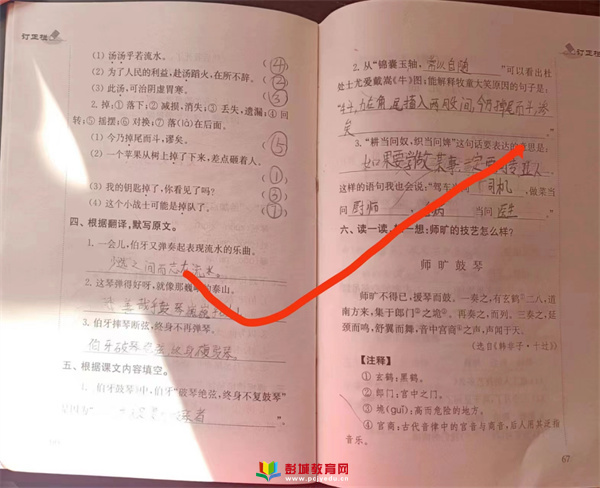 订正栏
(1) 汤汤乎若流水。 (④)
(2) 为了人民的利益,赴汤蹈火,在所不辞。 (②)
(3) 此汤,可治阴虚胃寒。 (③)
2. 掉:① 落下;② 减损,消失;③ 丢失,遗漏;④ 回
转;⑤ 摇摆;⑥ 对换;⑦ 落(là)在后面。
(1) 今乃掉尾而斗,谬矣。 (⑤)
(2) 一个苹果从树上掉了下来,差点砸着人。
(①)
(3) 我的钥匙掉了,你看见了吗? (③)
(4) 这个小战士可能是掉队了。
四、根据翻译,默写原文。
1. 一会儿,伯牙又弹奏起表现流水的乐曲。
少选之间而志在流水。
2. 这琴弹得好呀,就像那巍峨的泰山。
3. 伯牙摔琴断弦,终身不再弹琴。
伯牙破琴绝弦,终身不复鼓琴。
五、根据课文内容填空。
1. 《伯牙鼓琴》中,伯牙“破琴绝弦,终身不复鼓琴”
订正栏
2. 从“锦囊玉轴,常以自随”可以看出杜
处士尤爱戴嵩《牛》图;能解释牧童大笑原因的句子是:
牛斗,力在角,尾搐入两股间,今乃掉尾而斗,谬
矣
3. “耕当问奴,织当问婢”这句话要表达的意思是:
这样的语句我也会说:“驾车 司机,做菜当
问 厨师 , 当问 医生 ”。
六、读一读,想一想:师旷的技艺怎么样?
师旷鼓琴
师旷不得已,援琴而鼓。一奏之,有玄鹤①二八,道
南方来,集于郎门②之垝③。再奏之,而列。三奏之,延
颈而鸣,舒翼而舞,音中宫商④之声,声闻于天。
(选自《韩非子·十过》)
【注释】
① 玄鹤:黑鹤。
② 郎门:宫中之门。
③ 垝(guǐ):高而危险的地方。
④ 宫商:古代音律中的宫音与商音,后人用其泛指
音乐。
67
彭城教育网
www.pcjyedu.cn